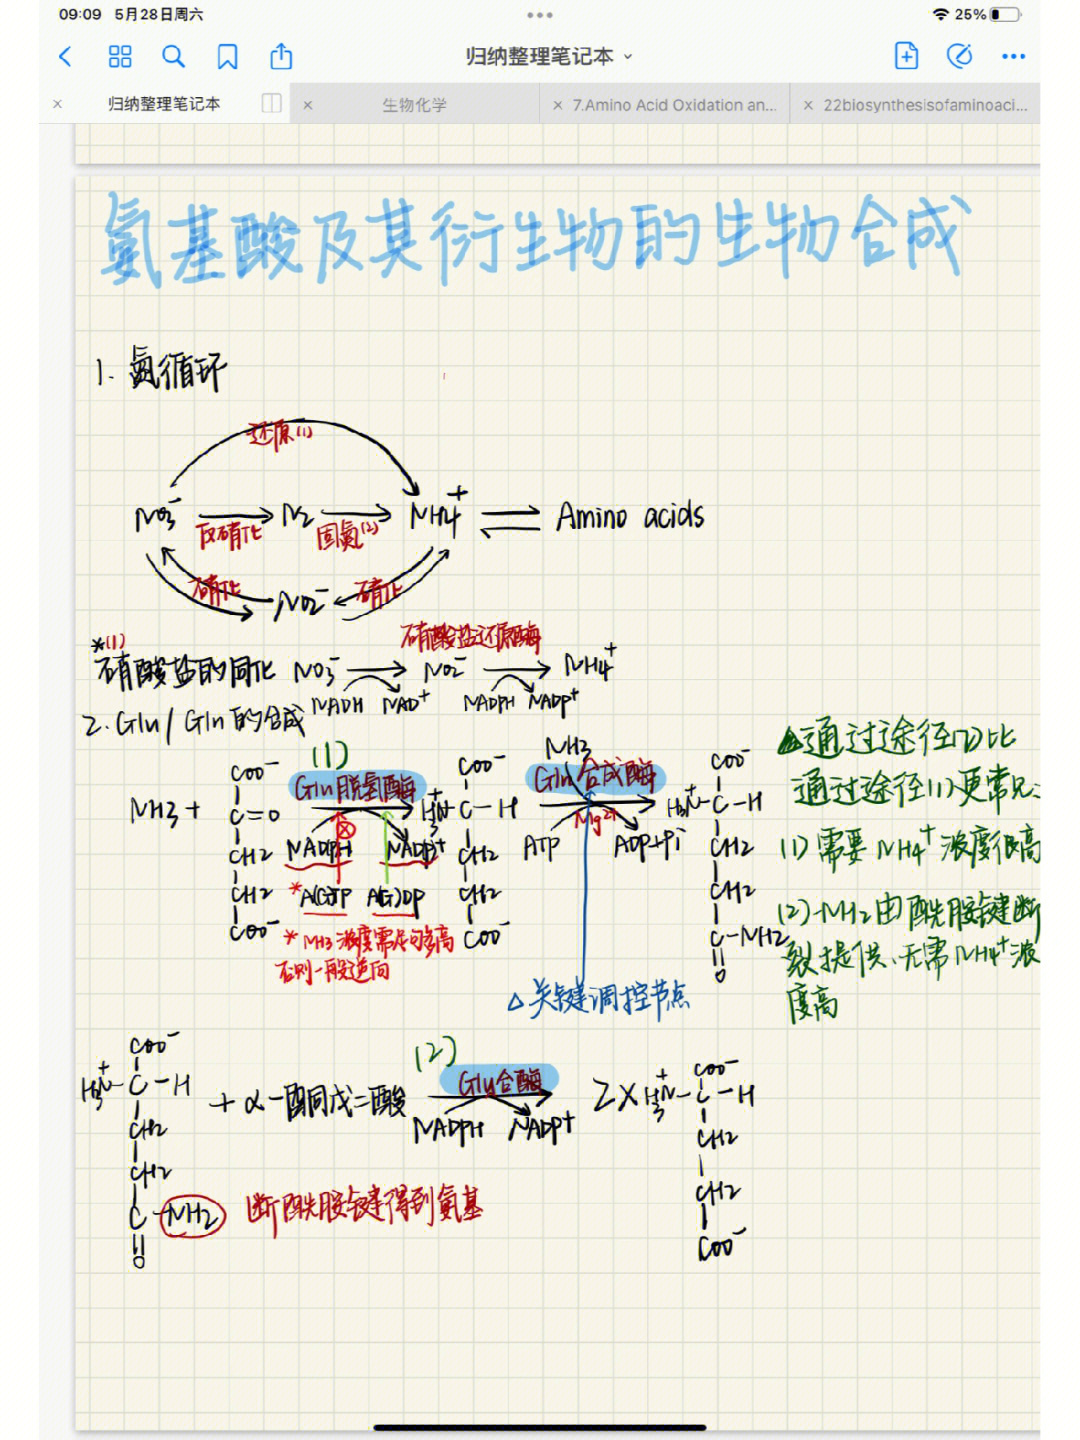 09:09 5月28日周六
25%
归纳整理笔记本
归纳整理笔记本
生物化学
7.Amino Acid Oxidation an...
22biosynthesisofaminoaci...
氨基酸及其衍生物的生物合成
1. 氮循环
还原(1)
NO3⁻ N2 NH4⁺ Amino acids
反硝化 固氮(2)
硝化 硝化
NO2⁻
*(1) 硝酸盐还原酶
硝酸盐的同化 NO3⁻ NO2⁻ NH4⁺
NADH NAD⁺ NADPH NADP⁺
2. Glu / Gln 的合成
(1)
NH3 +
COO⁻
C=O
CH2
CH2
COO⁻
Gln脱氢酶
NADPH NADP⁺
*A(G)TP A(G)DP
* NH3浓度需足够高
否则一般逆向
COO⁻
H3N⁺-C-H
CH2
CH2
COO⁻
NH3
Gln合成酶
Mg²⁺
ATP ADP+Pi
△关键调控节点
COO⁻
H3N⁺-C-H
CH2
CH2
C-NH2
O
△通过途径(2)比
通过途径(1)更常见:
(1)需要NH4⁺浓度很高
(2)-NH2由酰胺键断
裂提供,无需NH4⁺浓
度高
COO⁻
H3N⁺-C-H
CH2
CH2
C-NH2
O
+ α-酮同戊二酸
(2)
Glu合酶
NADPH NADP⁺
2×
COO⁻
H3N⁺-C-H
CH2
CH2
COO⁻
断酰胺键得到氨基